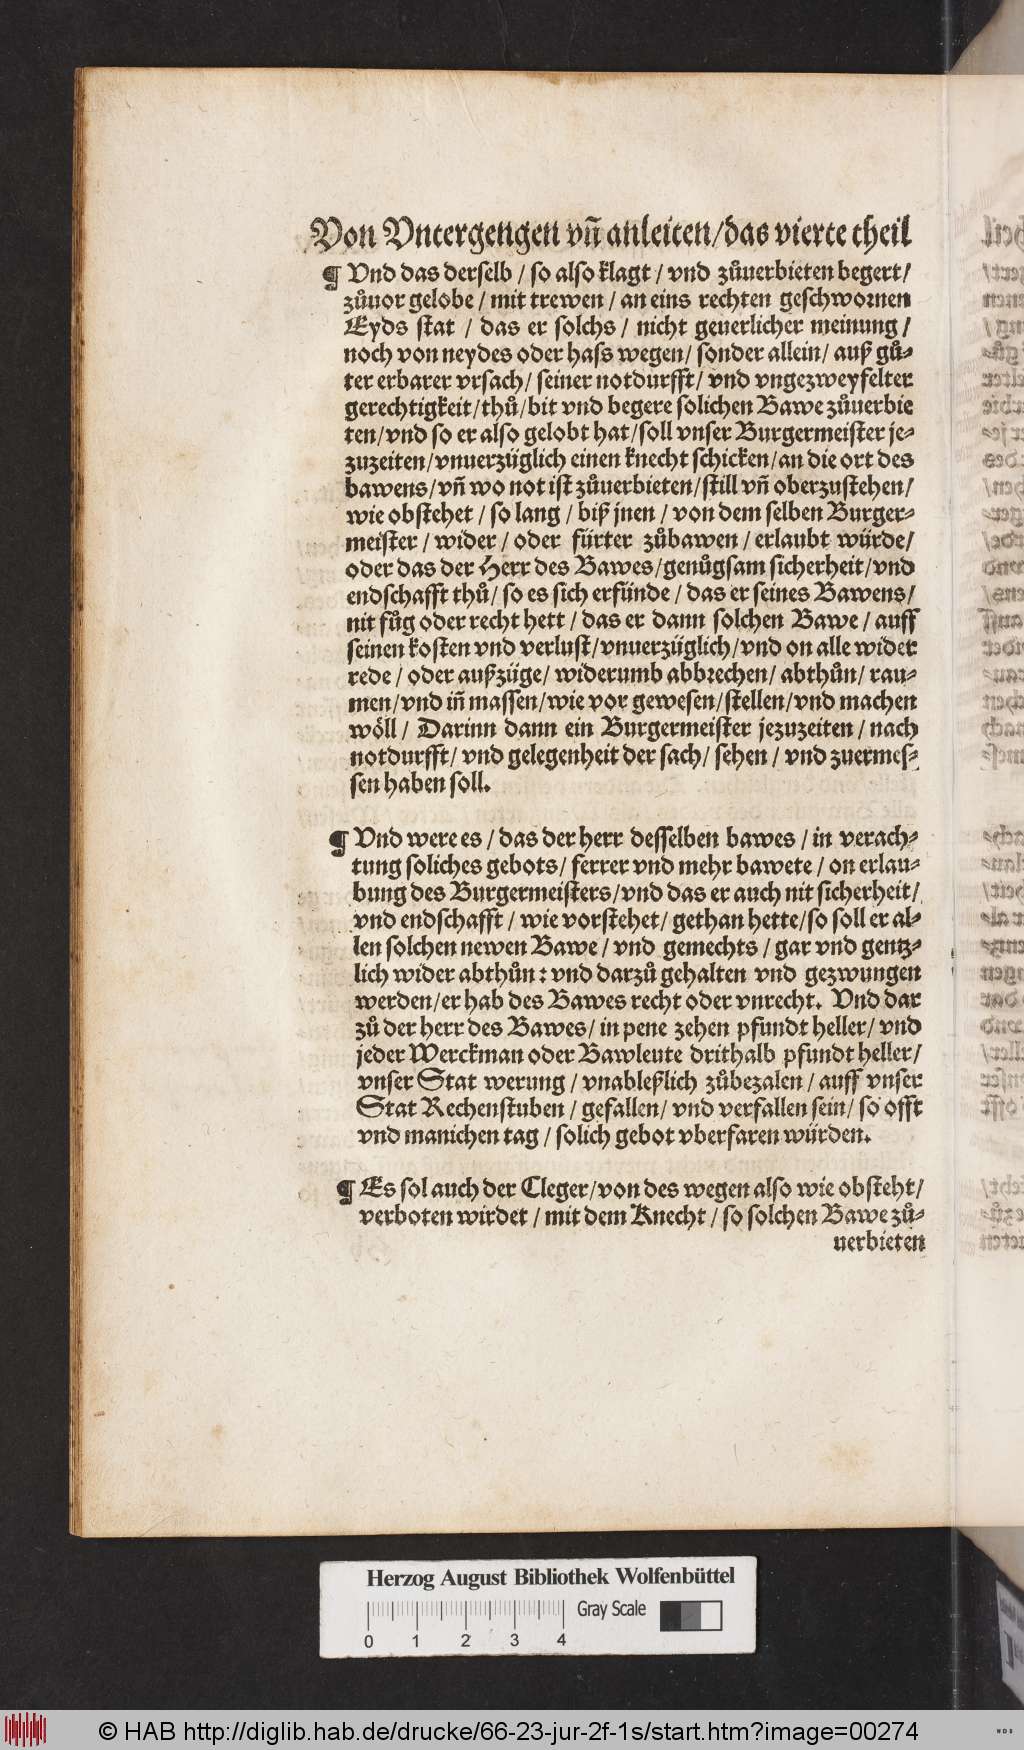 Von Vntergengen vñ anleiten/das vierte theil
¶ Vnd das derselb / so also klagt / vnd zůuerbieten begert/
zůuor gelobe / mit trewen / an eins rechten geschwornen
Eyds stat / das er solchs / nicht geuerlicher meinung /
noch von neydes oder hass wegen / sonder allein / auß gů⸗
ter erbarer vrsach / seiner notdurfft / vnd vngezweyfelter
gerechtigkeit / thů / bit vnd begere solichen Bawe zůuerbie
ten/vnd so er also gelobt hat/soll vnser Burgermeister je⸗
zuzeiten/vnuerzüglich einen knecht schicken/an die ort des
bawens/vñ wo not ist zůuerbieten/still vñ oberzustehen/
wie obstehet / so lang / biß jnen / von dem selben Burger⸗
meister / wider / oder fürter zůbawen / erlaubt würde/
oder das der Herr des Bawes/genůgsam sicherheit/vnd
endschafft thů/ so es sich erfünde / das er seines Bawens/
nit fůg oder recht hett / das er dann solchen Bawe / auff
seinen kosten vnd verlust/vnuerzüglich/vnd on alle wider
rede / oder außzüge/ widerumb abbrechen/ abthůn/ rau⸗
men/vnd iñ massen/wie vor gewesen/stellen/vnd machen
wöll / Darinn dann ein Burgermeister jezuzeiten / nach
notdurfft/ vnd gelegenheit der sach/ sehen / vnd zuermes⸗
sen haben soll.
¶ Vnd were es / das der herr desselben bawes / in verach⸗
tung soliches gebots/ ferrer vnd mehr bawete / on erlau⸗
bung des Burgermeisters/vnd das er auch nit sicherheit/
vnd endschafft / wie vorstehet/ gethan hette/so soll er al⸗
len solchen newen Bawe / vnd gemechts / gar vnd gentz⸗
lich wider abthůn : vnd darzů gehalten vnd gezwungen
werden/er hab des Bawes recht oder vnrecht. Vnd dar
zů der herr des Bawes/ in pene zehen pfundt heller/ vnd
jeder Werckman oder Bawleute drithalb pfundt heller/
vnser Stat werung / vnableßlich zůbezalen / auff vnser
Stat Rechenstuben / gefallen/ vnd verfallen sein/ so offt
vnd manichen tag / solich gebot vberfaren würden.
¶ Es sol auch der Cleger/von des wegen also wie obsteht/
verboten wirdet / mit dem Knecht / so solchen Bawe zů⸗
uerbieten
Herzog August Bibliothek Wolfenbüttel
Gray Scale
0 1 2 3 4
© HAB http://diglib.hab.de/drucke/66-23-jur-2f-1s/start.htm?image=00274